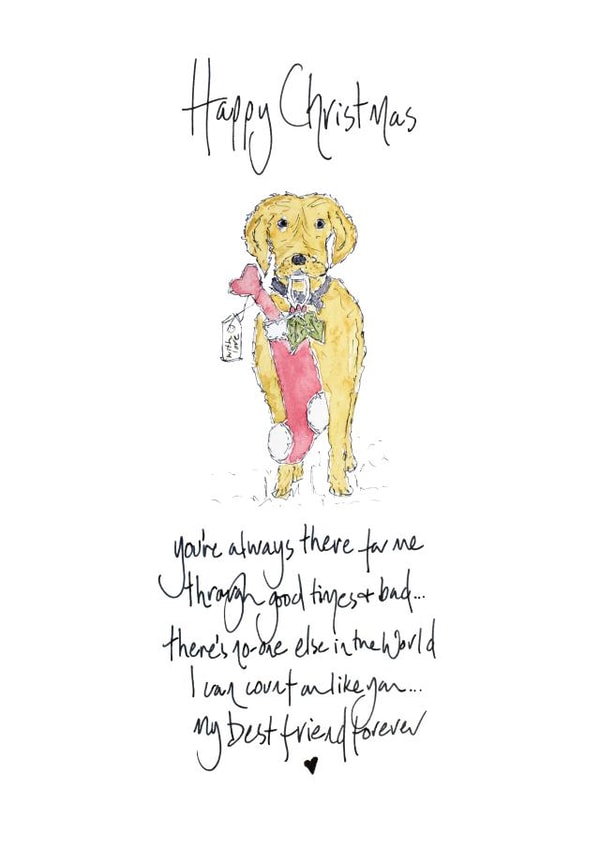 Happy Christmas
with
love
you're always there for me
through good times + bad...
there's no-one else in the World
I can count on like you...
my best friend forever